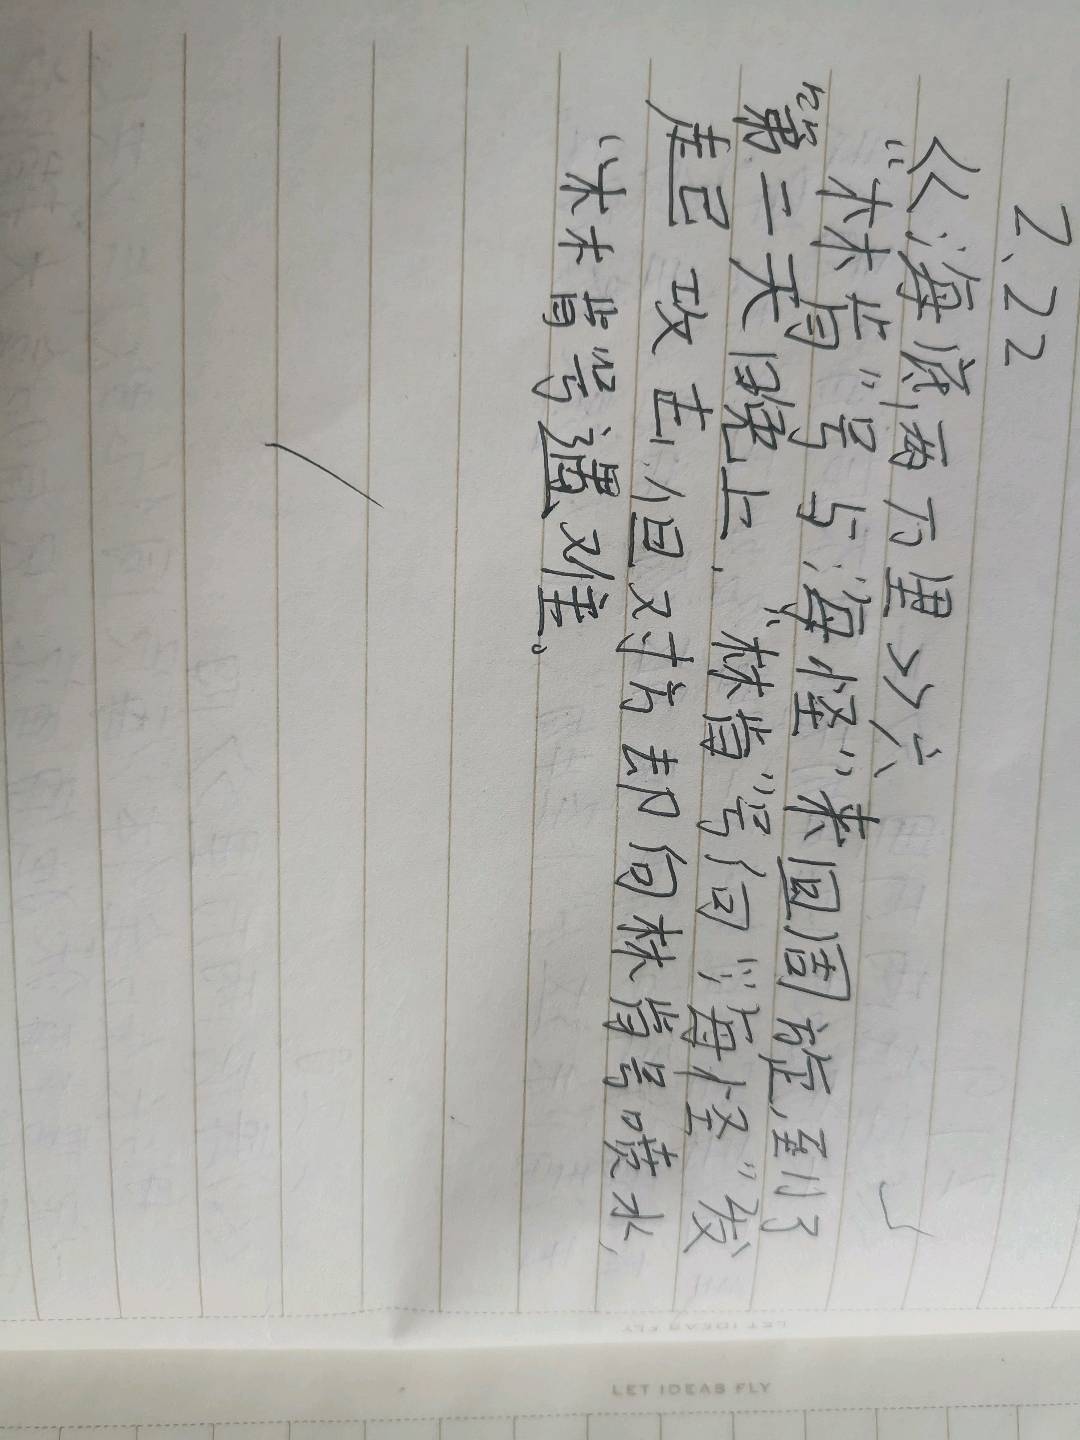 2.22
《海底两万里》六
“林肯”号与海怪”来回周旋,到了
第二天晚上,“林肯”号向“海怪”发
起攻击,但对方却向林肯号喷水,
“林肯号遇难。
LET IDEAS FLY